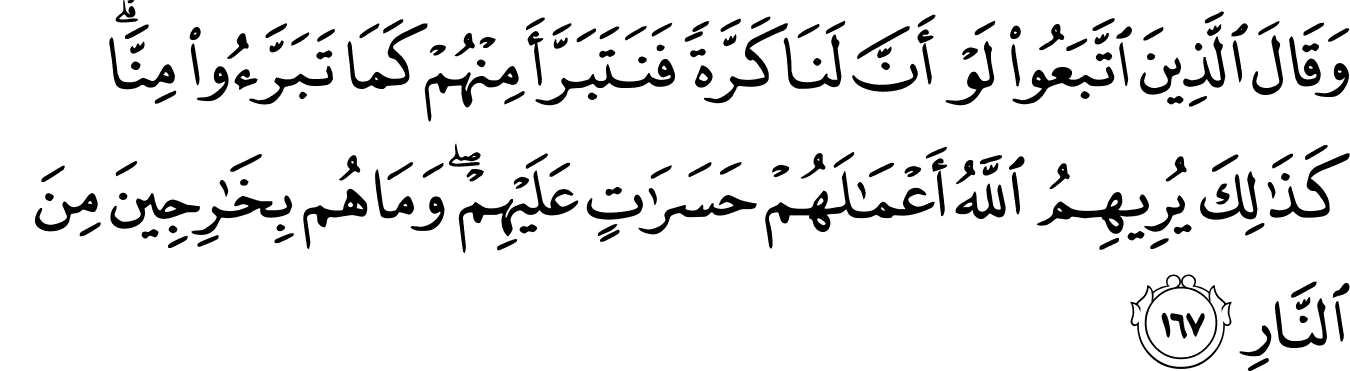 وَقَالَ ٱلَّذِينَ ٱتَّبَعُوا۟ لَوْ أَنَّ لَنَا كَرَّةً فَنَتَبَرَّأَ مِنْهُمْ كَمَا تَبَرَّءُوا۟ مِنَّا ۗ
كَذَٰلِكَ يُرِيهِمُ ٱللَّهُ أَعْمَـٰلَهُمْ حَسَرَٰتٍ عَلَيْهِمْ ۖ وَمَا هُم بِخَـٰرِجِينَ مِنَ
ٱلنَّارِ ١٦٧